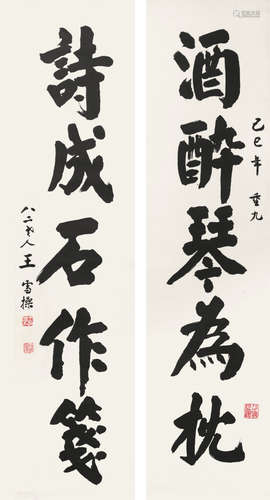 酒醉琴為枕
乙巳年 重九
詩成石作箋
八二老人 王雪操